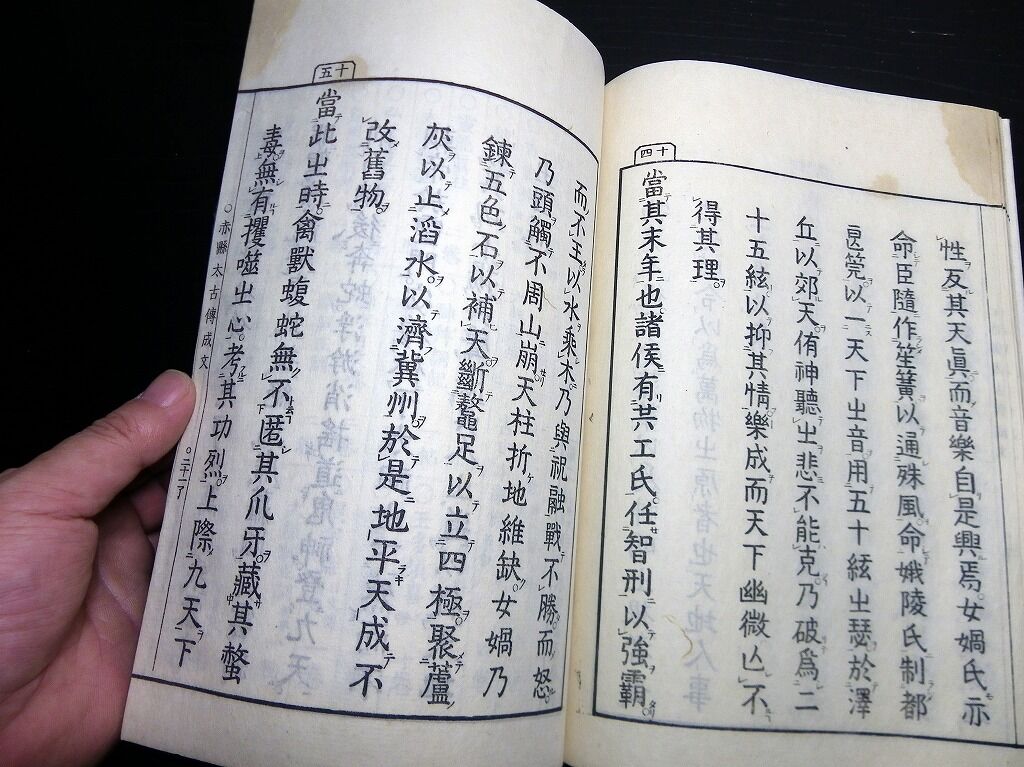 性反其天眞而音樂自是興焉女媧氏示
命臣隨作笙簧以通殊風命娥陵氏制都
良筦以一天下㞢音用五十絃㞢瑟於澤
丘以郊天侑神聽㞢悲不能克乃破爲二
十五絃以抑其情樂成而天下幽微亾不
得其理
十四
當其末年也諸侯有共工氏任智刑以強霸
而不王以水乘木乃與祝融戰不勝而怒
乃頭觸不周山崩天柱折地維缺女媧乃
鍊五色石以補天斷鼇足以立四極聚蘆
灰以止滔水以濟冀州於是地平天成不
改舊物
十五
當此㞢時禽獸蝮蛇無不匿其爪牙藏其螫
毒無有攫噬㞢心考其功烈上際九天下
○赤縣太古傳成文
○二十一了